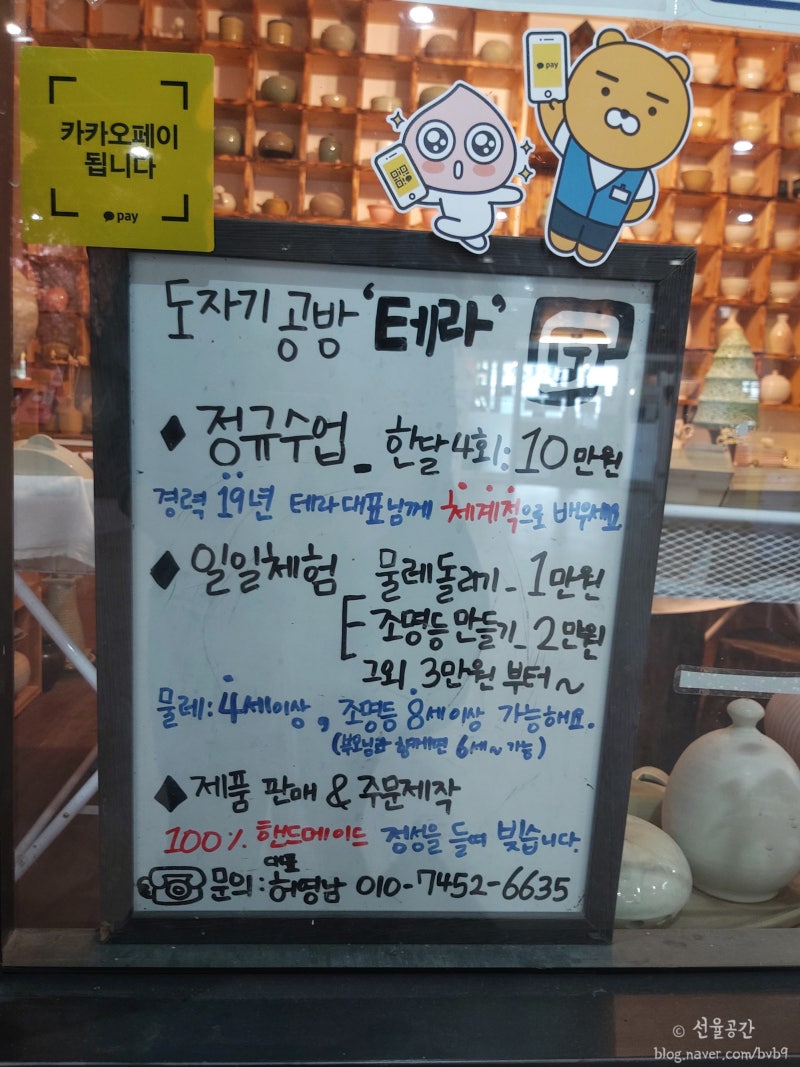 카카오페이
됩니다
pay
pay
도자기 공방 '테라'
◆ 정규수업 - 한달 4회: 10만원
경력 19년 테라 대표님께 체계적으로 배우세요
◆ 일일체험 물레돌리기 - 1만원
조명등 만들기 - 2만원
그외 3만원 부터~
물레: 4세이상, 조명등 8세이상 가능해요.
(부모님과 함께하면 6세~가능)
◆ 제품 판매 & 주문제작
100% 핸드메이드 정성을 들여 빚습니다.
대표
문의: 허영남 010-7452-6635
© 선율공간
blog.naver.com/bvb9